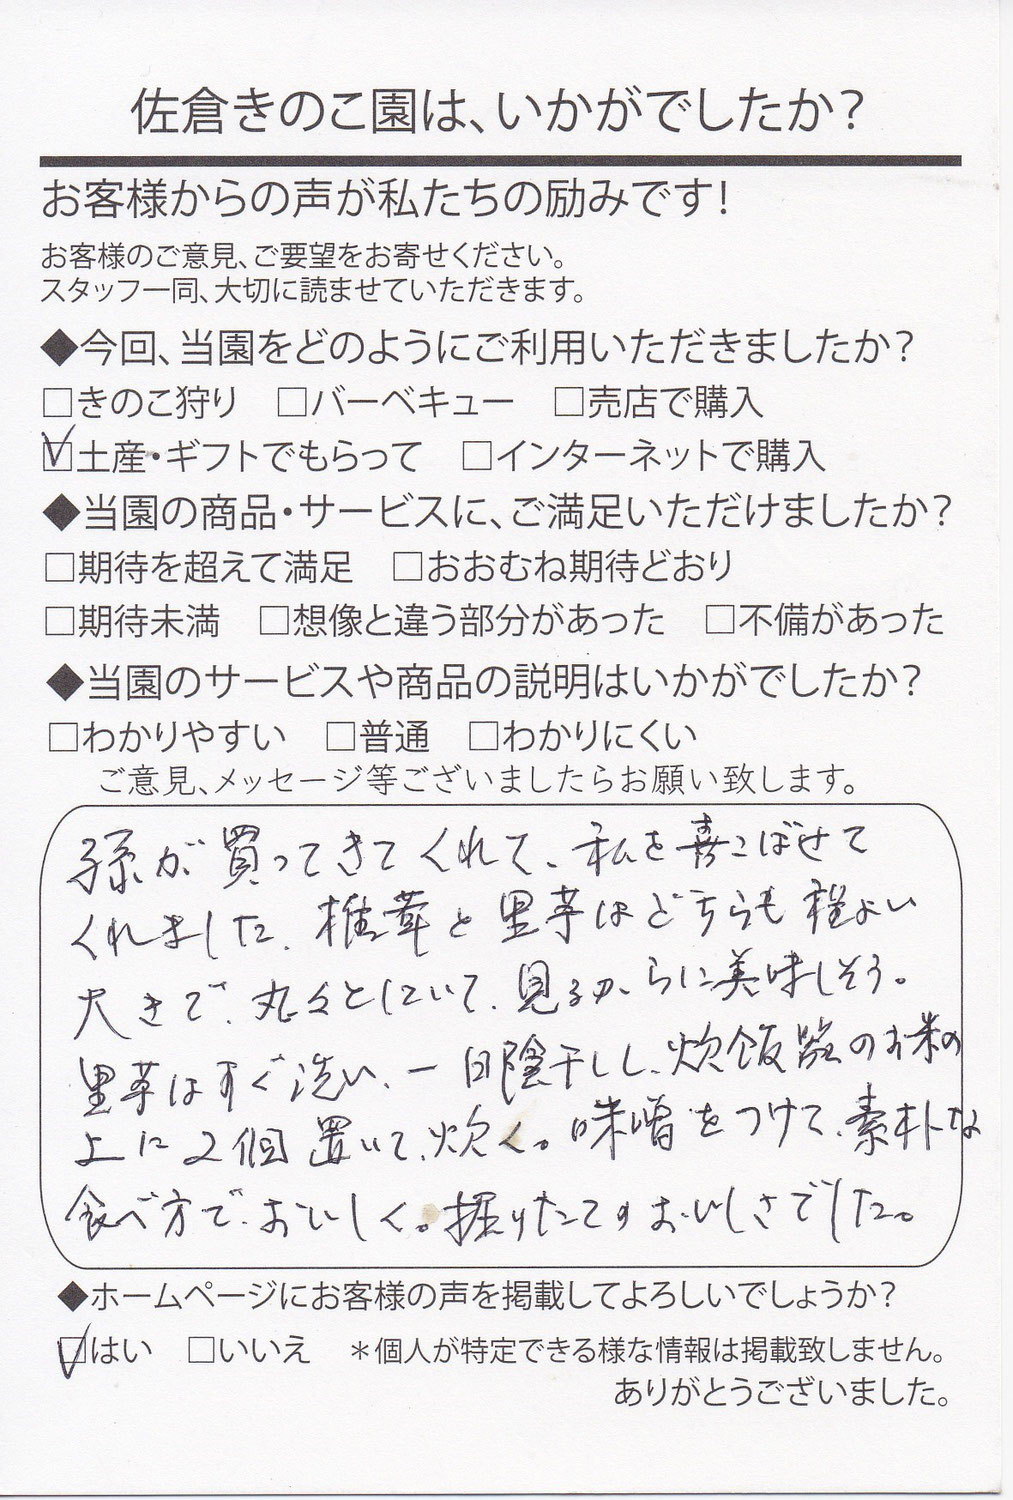 佐倉きのこ園は、いかがでしたか？
お客様からの声が私たちの励みです！
お客様のご意見、ご要望をお寄せください。
スタッフ一同、大切に読ませていただきます。
◆今回、当園をどのようにご利用いただきましたか？
□きのこ狩り　□バーベキュー　□売店で購入
☑土産・ギフトでもらって　□インターネットで購入
◆当園の商品・サービスに、ご満足いただけましたか？
□期待を超えて満足　□おおむね期待どおり
□期待未満　□想像と違う部分があった　□不備があった
◆当園のサービスや商品の説明はいかがでしたか？
□わかりやすい　□普通　□わかりにくい
ご意見、メッセージ等ございましたらお願い致します。
孫が買ってきてくれて、私を喜こばせて
くれました。椎茸と里芋はどちらも程よい
大きで、丸々としていて、見るからに美味しそう。
里芋はすぐ洗い、一日陰干しし、炊飯器のお米の
上に2個置いて、炊く。味噌をつけて、素朴な
食べ方で、おいしく。掘りたてのおいしさでした。
◆ホームページにお客様の声を掲載してよろしいでしょうか？
☑はい　□いいえ　＊個人が特定できる様な情報は掲載致しません。
ありがとうございました。